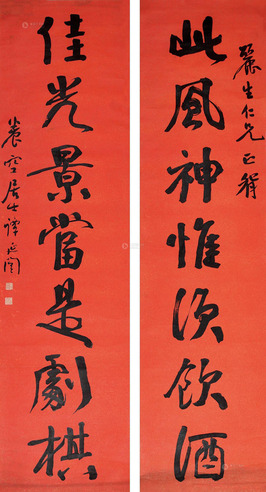 麗生仁兄正
此風神惟須飲酒
佳光景當是劇棋
空居士譚延闓